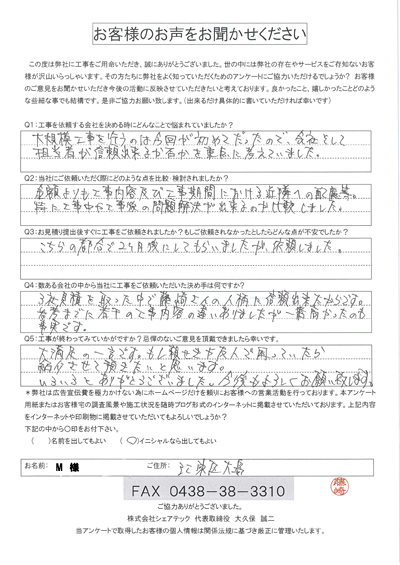 お客様のお声をお聞かせください
この度は弊社に工事をご用命いただき、誠にありがとうございました。世の中には弊社の存在やサービスをご存知ないお客
様が沢山いらっしゃいます。その方たちに弊社をよく知っていただくためのアンケートにご協力いただけるでしょうか？ お客様
のご意見をお聞かせいただき今後の活動に反映させていただきたいと考えております。良かったこと、嬉しかったことどのよう
な些細な事でも結構です。是非ご協力お願い致します。（出来るだけ具体的に書いていただければ幸いです）
Q1：工事を依頼する会社を決める時にどんなことで悩まれていましたか？
大規模工事を行うのは今回が初めてだったので、会社として
担当者が信頼出来るか否かを重点に考えていました。
Q2：当社にご依頼いただく際にどのような点を比較・検討されましたか？
金額よりも工事内容及び工事期間における近隣への配慮等。
特に工事中や工事後の問題解決が出来るのか比較しました。
Q3：お見積り提出後すぐにご依頼されましたか？もしご依頼されなかったとしたらどんな点が不安でしたか？
こちらの都合で2ヶ月後にしてもらいましたが、依頼しました。
Q4：数ある会社の中から当社に工事をご依頼いただいた決め手は何ですか？
3社見積を取った中で藤崎さんの人柄へ信頼出来たからです。
参考までに若干の工事内容の違いありましたが一番高かったのも
事実です。
Q5：工事が終わってみていかがですか？忌憚のないご意見を頂戴できましたら幸いです。
大満足の一言です。もし親せきや友人で困っていたら
紹介させて頂きたいと思います。
いろいろとありがとうございました。今後もよろしくお願い致します。
＊弊社は広告宣伝費を極力かけない為にホームページだけを頼りにお客様への営業活動を行っております。本アンケート
用紙またはお客様宅の調査風景や施工状況を随時ブログ形式のインターネットに掲載させていただいております。上記内容
をインターネットや印刷物に掲載させていただいてもよろしいでしょうか？
下記の中から○印をお付け下さい。
（　）名前を出してもよい （○）イニシャルなら出してもよい
お名前： M 様 ご住所：
FAX 0438-38-3310
藤崎
ご協力ありがとうございました。
株式会社シェアテック 代表取締役 大久保 誠二
当アンケートで取得したお客様の個人情報は関係法規に基づき厳正に管理いたします。